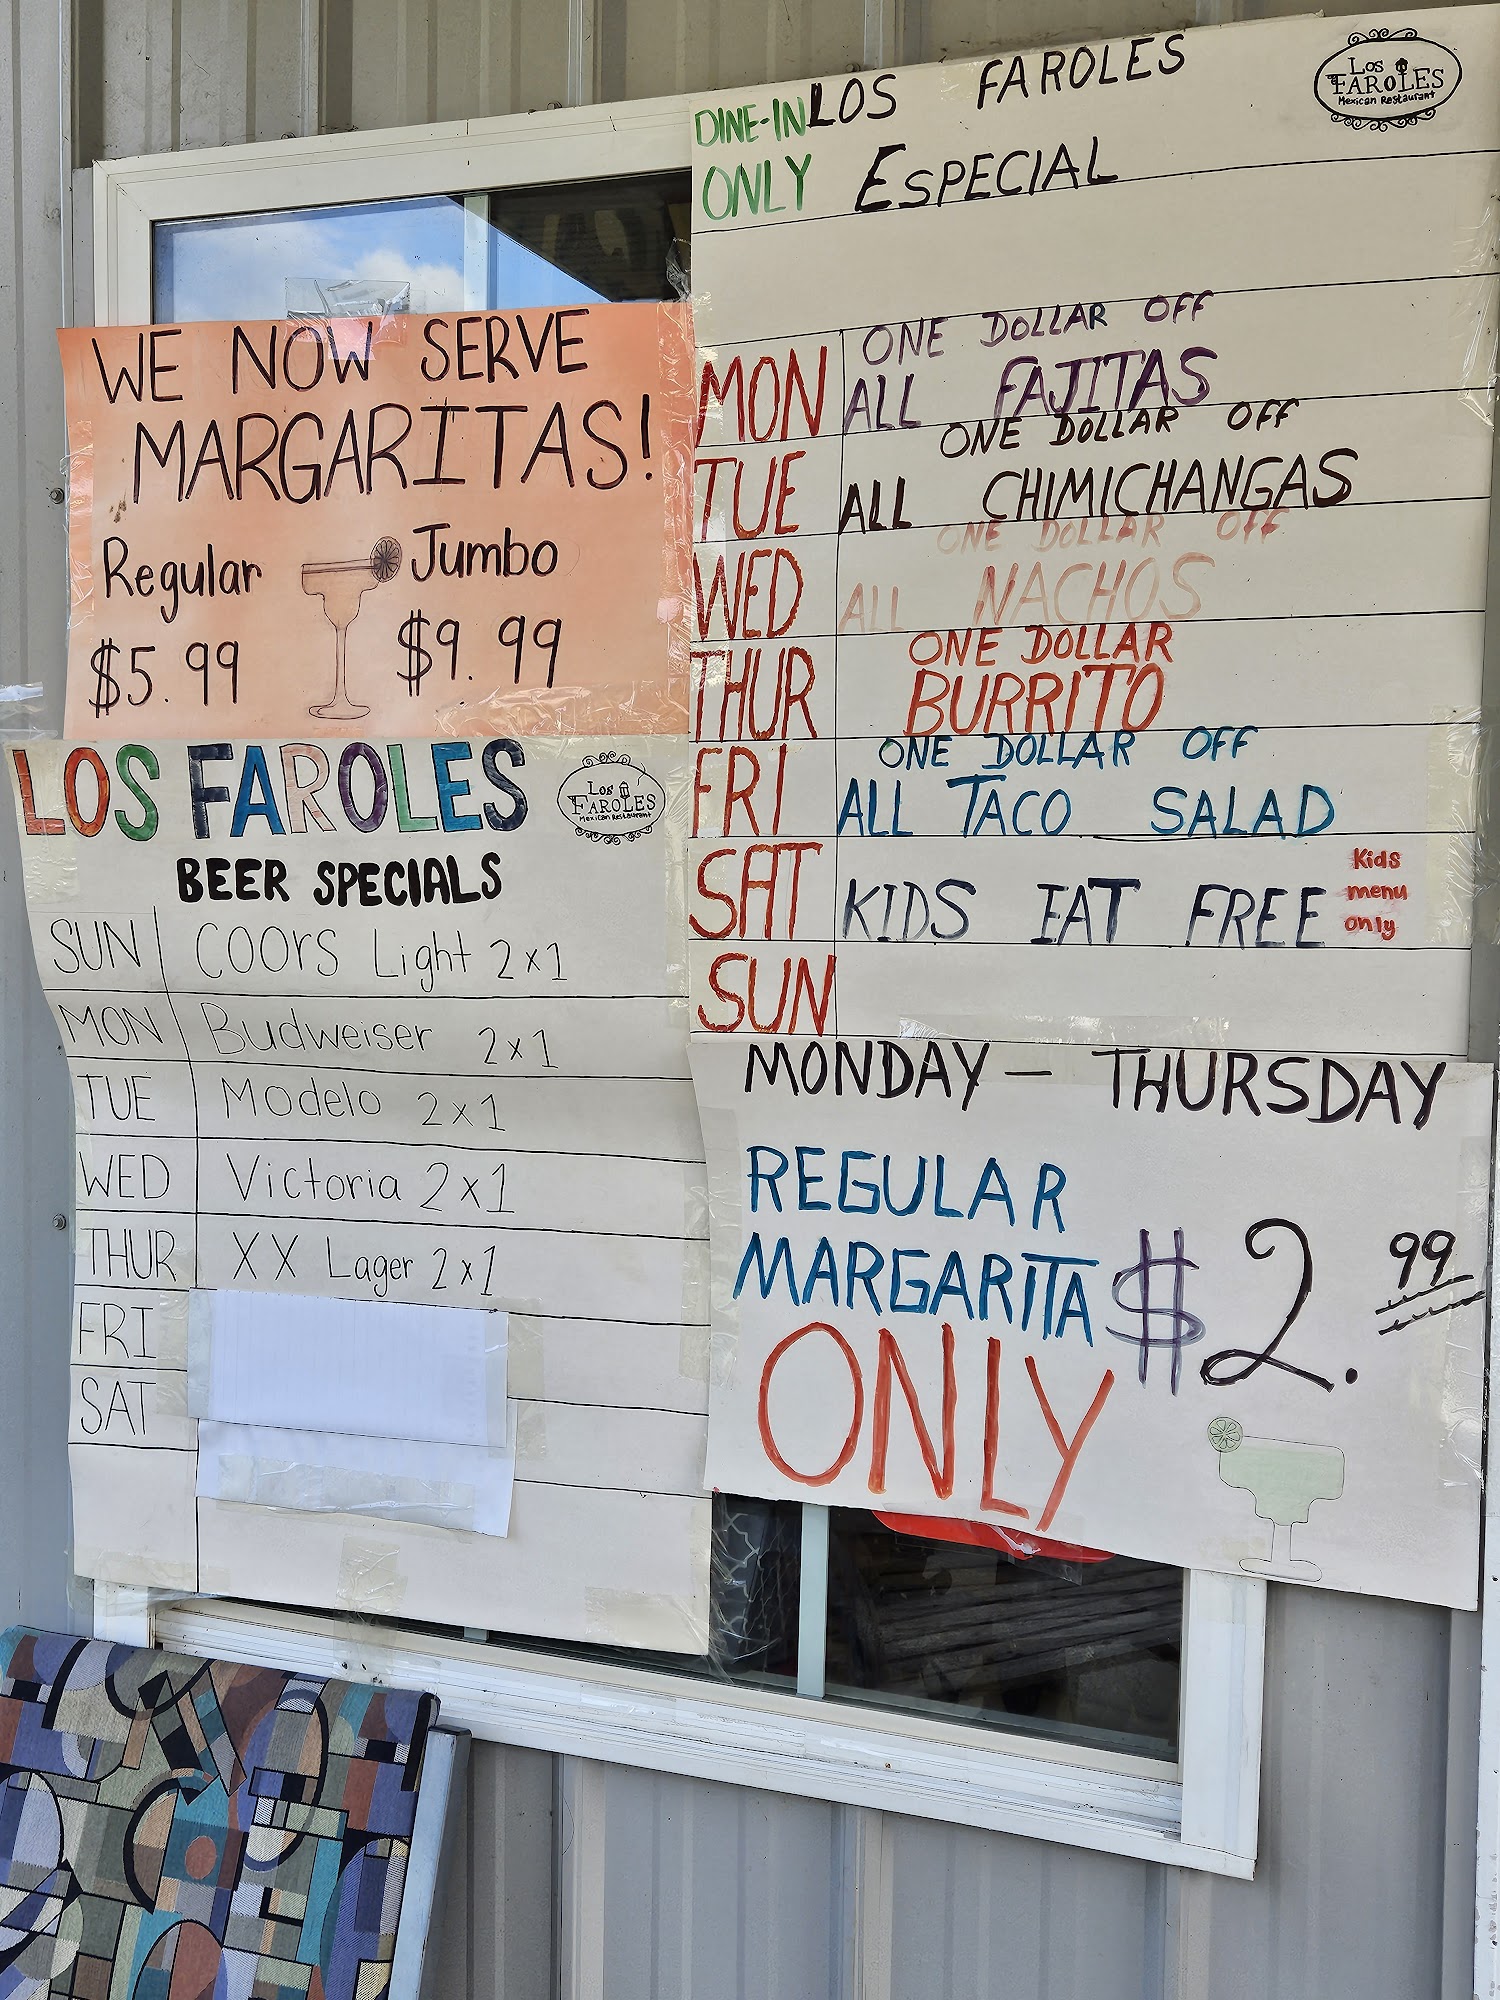 WE NOW SERVE
MARGARITAS!
Regular
$5.99
Jumbo
$9.99
LOS FAROLES
Los
FAROLES
Mexican Restaurant
BEER SPECIALS
SUN COORS Light 2x1
MON Budweiser 2x1
TUE Modelo 2x1
WED Victoria 2x1
THUR XX Lager 2x1
FRI
SAT
DINE-IN
ONLY
LOS FAROLES
ESPECIAL
Los
FAROLES
Mexican Restaurant
MON ONE DOLLAR OFF
ALL FAJITAS
TUE ONE DOLLAR OFF
ALL CHIMICHANGAS
WED ONE DOLLAR OFF
ALL NACHOS
THUR ONE DOLLAR
BURRITO
FRI ONE DOLLAR OFF
ALL TACO SALAD
SAT KIDS EAT FREE
Kids
menu
only
SUN
MONDAY — THURSDAY
REGULAR
MARGARITA
ONLY
$2.99